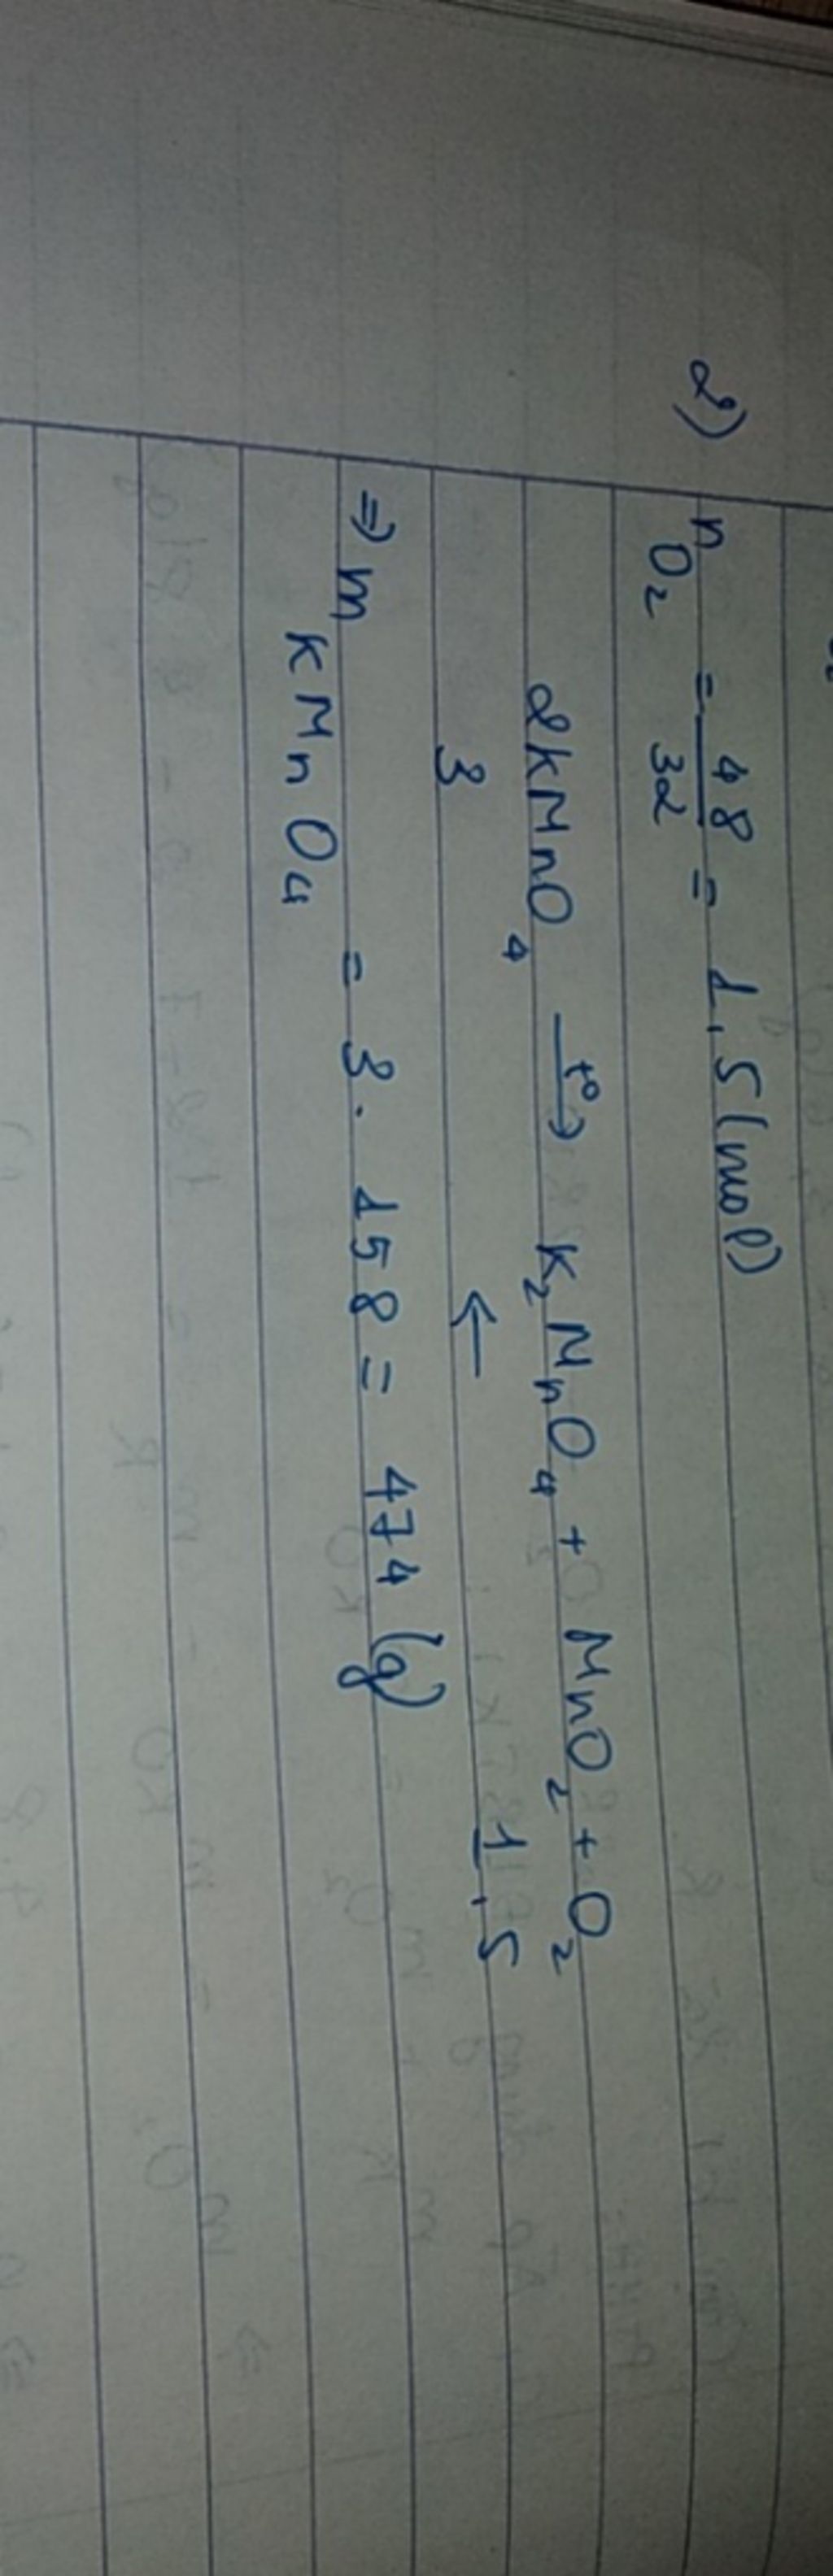 2) nO2 = 48/32 = 1,5 (mol)
2KMnO4 t°→ K2MnO4 + MnO2 + O2
3 ← 1,5
⇒ mKMnO4 = 3 . 158 = 474 (g)